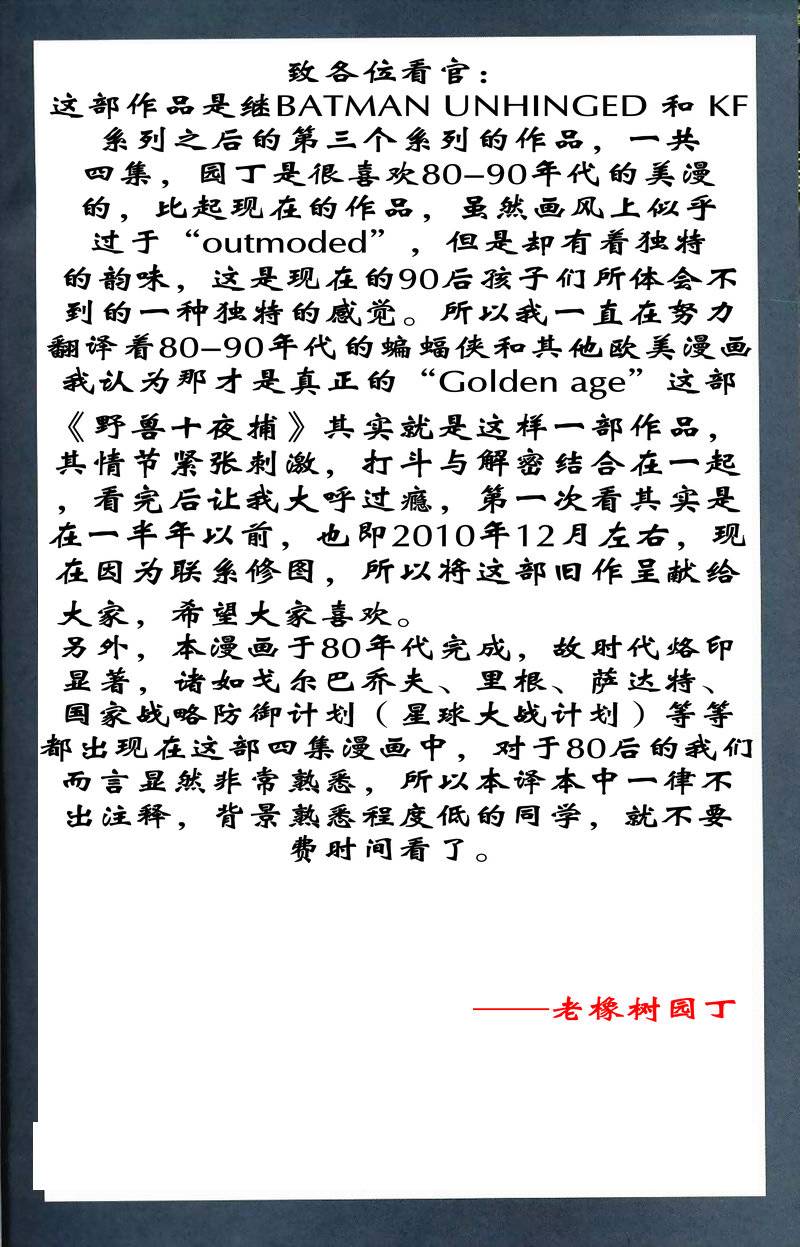 致各位看官：
这部作品是继BATMAN UNHINGED 和 KF
系列之后的第三个系列的作品，一共
四集，园丁是很喜欢80-90年代的美漫
的，比起现在的作品，虽然画风上似乎
过于“outmoded”，但是却有着独特
的韵味，这是现在的90后孩子们所体会不
到的一种独特的感觉。所以我一直在努力
翻译着80-90年代的蝙蝠侠和其他欧美漫画
我认为那才是真正的“Golden age”这部
《野兽十夜捕》其实就是这样一部作品，
其情节紧张刺激，打斗与解密结合在一起
，看完后让我大呼过瘾，第一次看其实是
在一半年以前，也即2010年12月左右，现
在因为联系修图，所以将这部旧作呈献给
大家，希望大家喜欢。
另外，本漫画于80年代完成，故时代烙印
显著，诸如戈尔巴乔夫、里根、萨达特、
国家战略防御计划（星球大战计划）等等
都出现在这部四集漫画中，对于80后的我们
而言显然非常熟悉，所以本译本中一律不
出注释，背景熟悉程度低的同学，就不要
费时间看了。
——老橡树园丁